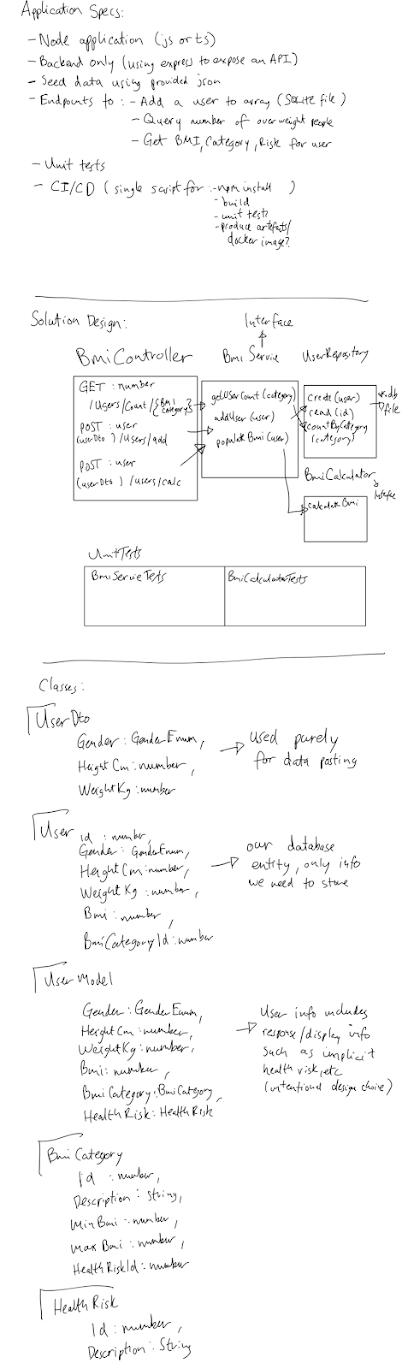 Application Specs:
- Node application (js or ts)
- Backend only (using express to expose an API)
- Seed data using provided json
- Endpoints to : - Add a user to array (SQLite file)
- Query number of overweight people
- Get BMI, Category, Risk for user
- Unit tests
- CI/CD (single script for :- npm install )
- build
- unit tests
- produce artefacts/
docker image?
Solution Design:
Interface
BmiController
Bmi Service
UserRepository
GET : number
/Users/Count/{Bmi category}
POST : user
(userDto) /Users/add
POST : user
(userDto) /users/calc
getUserCount(category)
addUser(user)
populateBmi(user)
create(user)
read(id)
countByCategory
(category)
.db
file
BmiCalculator
Interface
calculateBmi
UnitTests
BmiServiceTests
BmiCalculatorTests
Classes:
UserDto
Gender : GenderEnum,
HeightCm : number,
WeightKg : number
used purely
for data posting
User
id : number,
Gender : GenderEnum,
HeightCm : number,
WeightKg : number,
Bmi : number,
BmiCategoryId : number
our database
entity, only info
we need to store
UserModel
Gender : GenderEnum,
HeightCm : number,
WeightKg : number,
Bmi : number,
BmiCategory : BmiCategory,
HealthRisk : HealthRisk
User info includes
response/display info
such as implicit
health risk, etc
(intentional design choice)
BmiCategory
Id : number,
Description : String,
MinBmi : number,
MaxBmi : number,
HealthRiskId : number
HealthRisk
Id : number,
Description : String